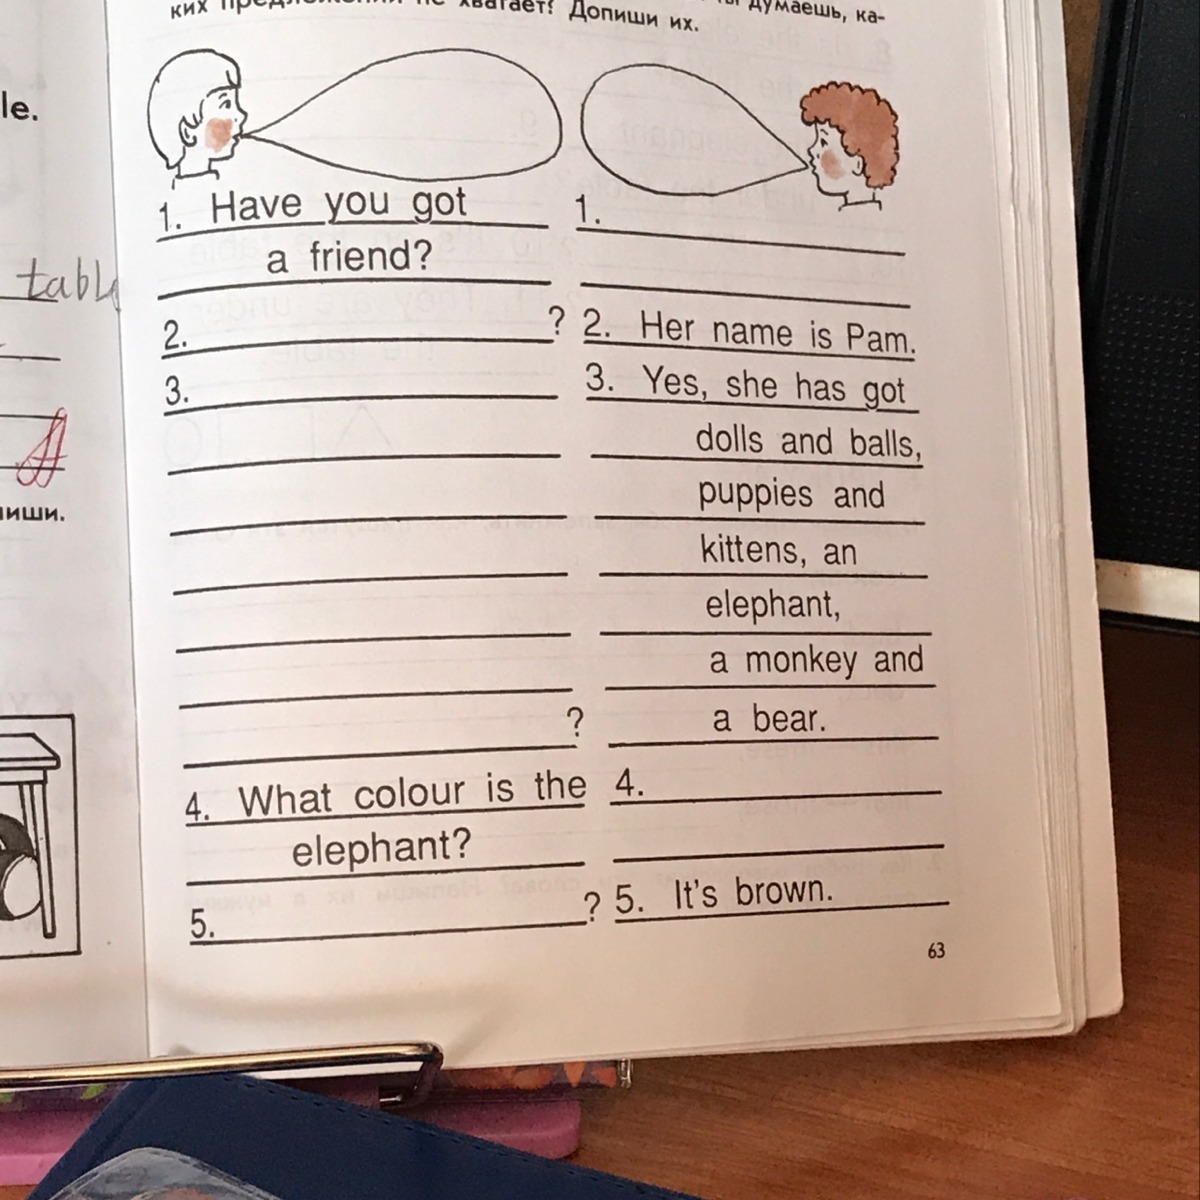 думаешь, ка-
ких предложений не хватает? Допиши их.
le.
table
иши.
1. Have you got
a friend?
2. ?
3.
?
4. What colour is the
elephant?
5. ?
1.
2. Her name is Pam.
3. Yes, she has got
dolls and balls,
puppies and
kittens, an
elephant,
a monkey and
a bear.
4.
5. It's brown.
63